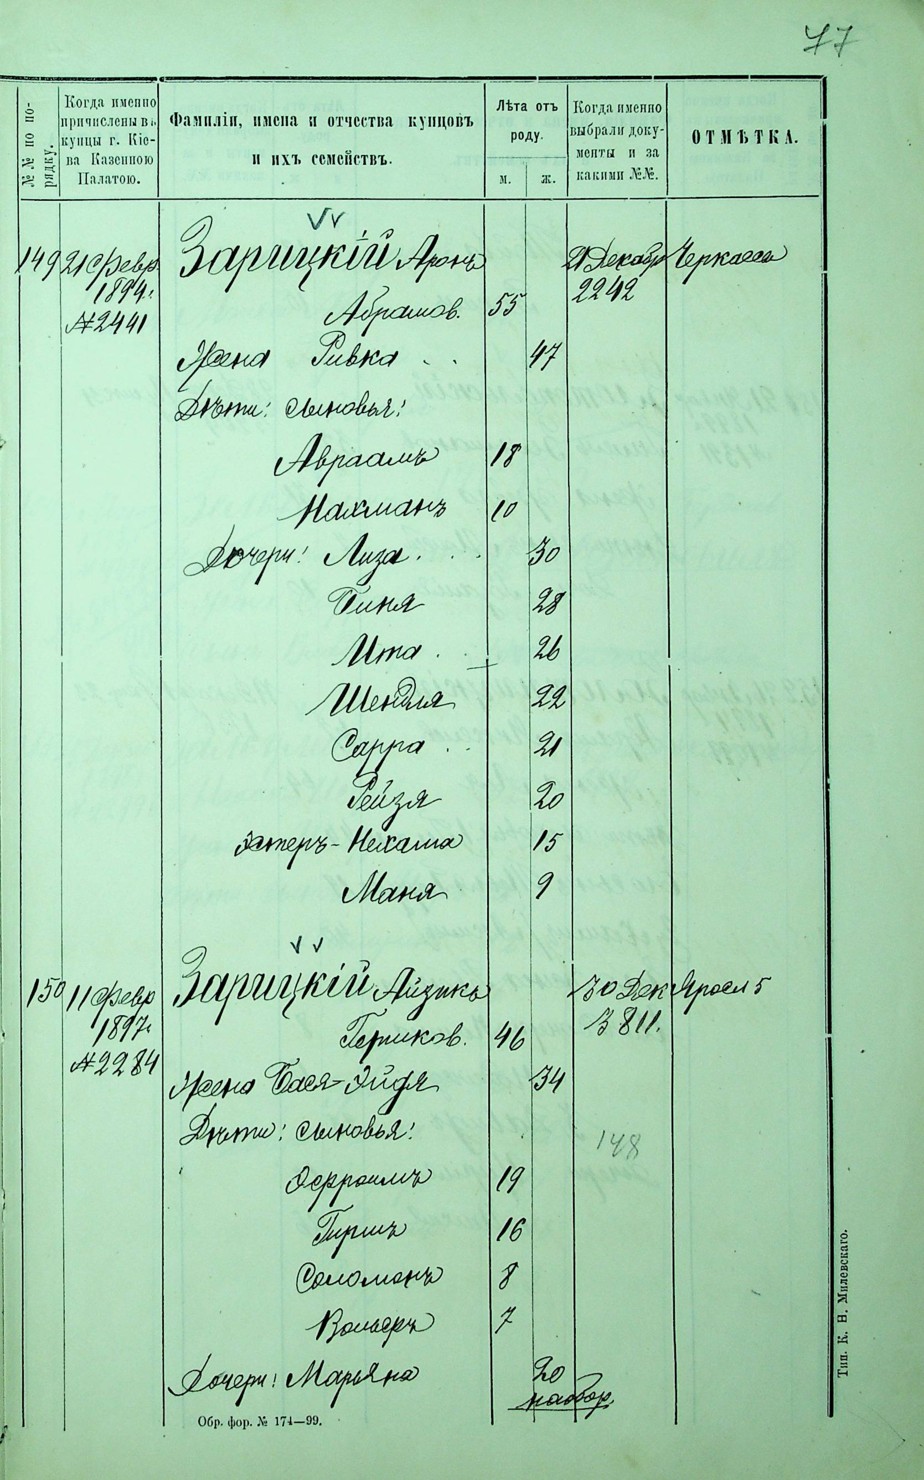 77
№№ по по-
рядку.
Когда именно
причислены въ
купцы г. Кіе-
ва Казенною
Палатою.
Фамиліи, имена и отчества купцовъ
и ихъ семействъ.
Лѣта отъ
роду.
м. ж.
Когда именно
выбрали доку-
менты и за
какими №№.
ОТМѢТКА.
149 21 Февр Зарицкій Аронъ 21 Декабр Черкассы
1894г. 2242
№ 2441 Абрамов. 55
Жена Ривка . . 47
Дѣти: сыновья:
Авраамъ 18
Нахманъ 10
Дочери: Лиза . . . 30
Гиня 28
Ита . 26
Шендля 22
Сарра . . 21
Рейзя 20
Эстеръ-Нехама 15
Маня 9
150 11 Февр Зарицкій Айзикъ 30 Дек Яросл 5
1897г. 3811.
Гершков. 46
№ 2284
Жена Бася-Эйдя 34
Дѣти: сыновья:
148
Эфроимъ 19
Гиршъ 16
Соломонъ 8
Вольфъ 7
Дочери: Марьяна 20
Обр. фор. № 174—99.
Тип. К. Н. Милевскаго.